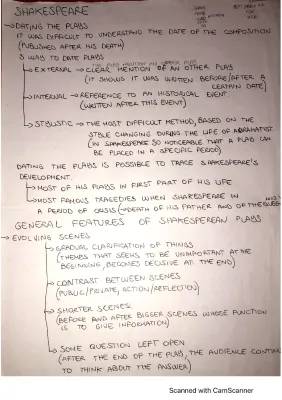 SHAKESPEARE
→DATING THE PLAYS
IT WAS DIFFICULT TO UNDERSTAND THE DATE OF THE COMPOSITION
(PUBLISHED AFTER HIS DEATH)
3 WAYS TO DATE PLAYS
→EXTERNAL → CLEAR MENTION OF AN OTHER PLAY
(IT SHOWS IT WAS WRITTEN BEFORE/AFTER A
CERTAIN DATE)
→INTERNAL → REFERENCE TO AN HISTORICAL EVENT
(WRITTEN AFTER THIS EVENT)
→ STYLISTIC → THE MOST DIFFICULT METHOD, BASED ON THE
STYLE CHANGING DURING THE LIFE OF A DRAMATIST
(IN SHAKESPEARE SO NOTICEABLE THAT A PLAY CAN
BE PLACED IN A SPECIFIC PERIOD)
DATING THE PLAYS IS POSSIBLE TO TRACE SHAKESPEARE'S
DEVELOPMENT.
→MOST OF HIS PLAYS IN FIRST PART OF HIS LIFE
→MOST FAMOUS TRAGEDIES WHEN SHAKESPEARE IN
A PERIOD OF CRISIS →DEATH OF HIS FATHER AND OF THE QUEEN
GENERAL FEATURES OF SHAKESPEREAN PLAYS
→ EVOLVING SCENES
→GRADUAL CLARIFICATION OF THINGS
(THEMES THAT SEEMS TO BE UNIMPORTANT AT THE
BEGINNING, BECOMES DECISIVE AT THE END)
→ CONTRAST BETWEEN SCENES
(PUBLIC/PRIVATE, ACTION/REFLECTION)
→ SHORTER SCENES
(BEFORE AND AFTER BIGGER SCENES WHOSE FUNCTION
IS TO GIVE INFORMATION)
→ SOME QUESTION LEFT OPEN
(AFTER THE END OF THE PLAYS, THE AUDIENCE CONTINUE
TO THINK ABOUT THE ANSWER)
Scanned with CamScanner